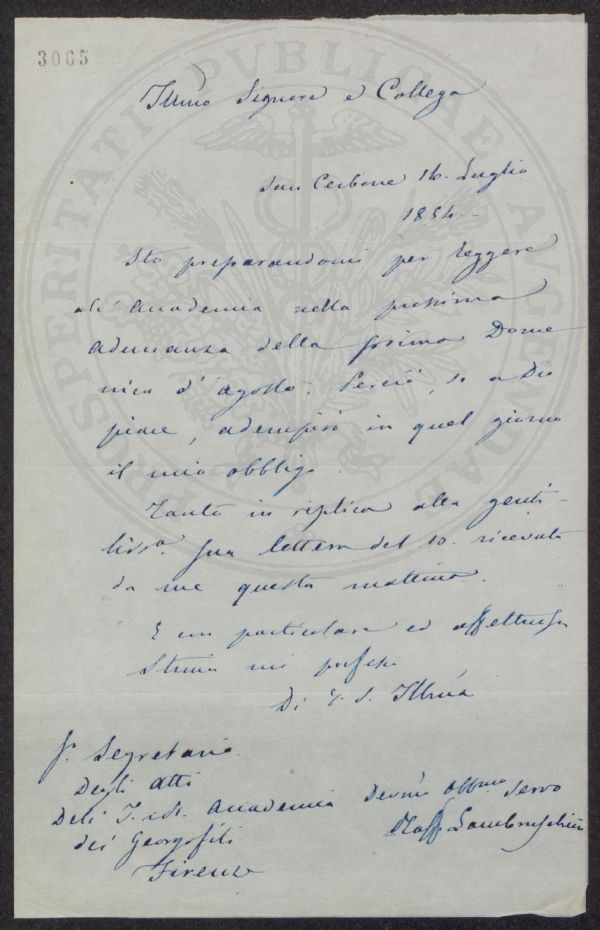 3065
PROSPERITATI PVBLICAE AVGENDAE
Illmo Signore e Collega
San Cerbone 16. Luglio
1854.
Sto preparandomi per leggere
all' Accademia nella prossima
adunanza della prima Dome
nica d' agosto. Perciò, se a Dio
piace, adempirò in quel giorno
il mio obbligo.
Tanto in replica alla genti-
lissa. Sua lettera del 10. ricevuta
da me questa mattina.
E con particolare ed affettuosa
stima mi professo
Di V. S. Illma
Segretario
Degli Atti
Dell' I. e R. Accademia
dei Georgofili
Firenze
Devmo Obbmo servo
Raff Lambruschini